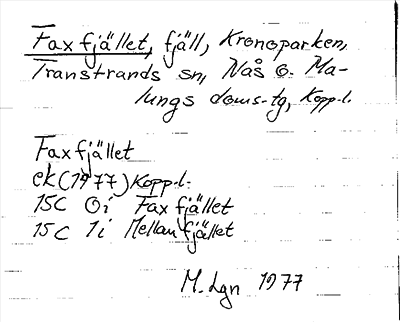 Faxfjället, fjäll, Kronoparken,
Transtrands sn, Nås o. Ma-
lungs doms.-tg, Kopp.l.
Faxfjället
ek (1977) Kopp.l.
15C 0i Faxfjället
15C 1i Mellanfjället
M. Lgn 1977